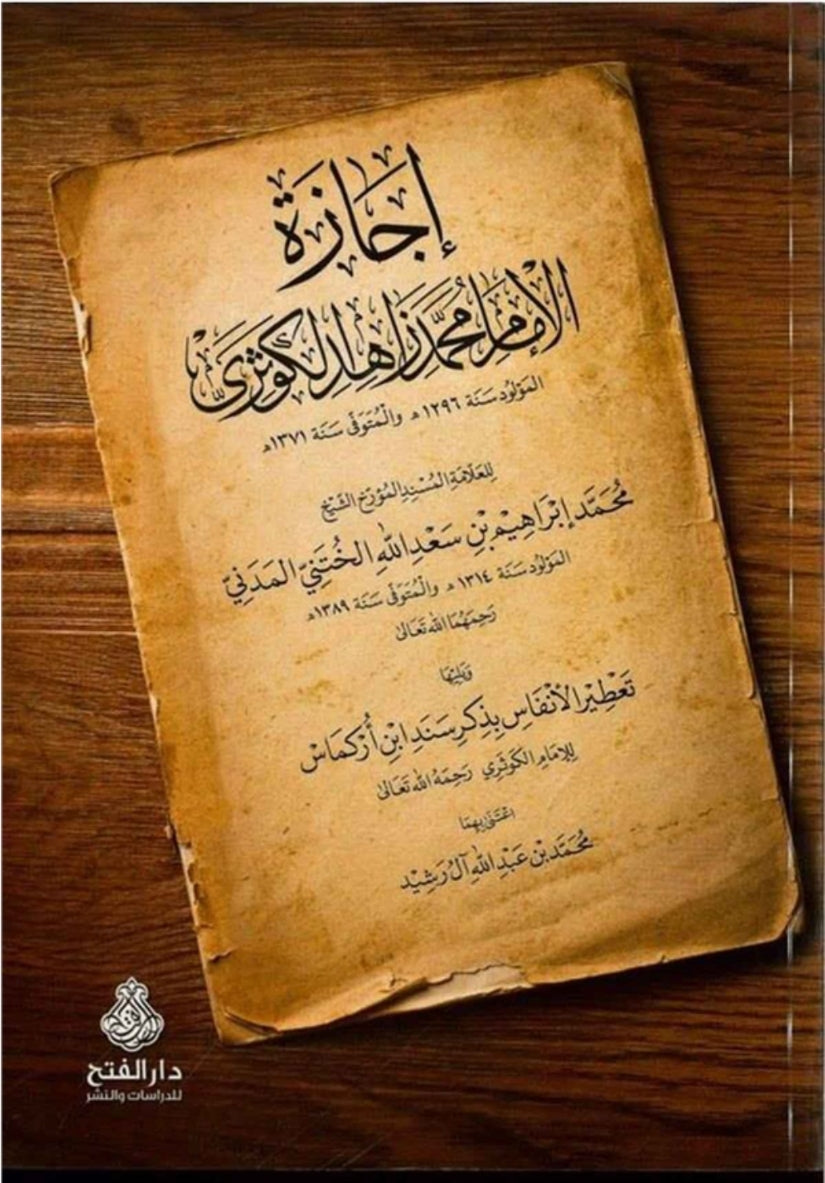 إِجَازَة
الإِمَامِ مُحَمَّد زَاهِد الكَوْثَرِيّ
المَوْلُود سَنَة ١٢٩٦ هـ والْمُتَوَفَّى سَنَة ١٣٧١هـ
لِلعَلَّامَةِ المُسْنِدِ المُؤَرِّخِ الشَّيْخ
مُحَمَّد إِبْرَاهِيْم بْنِ سَعْدِ اللهِ الخُتَنِيّ المَدَنِيّ
المَوْلُود سَنَة ١٣١٤ هـ والْمُتَوَفَّى سَنَة ١٣٨٩هـ
رَحِمَهُمَا اللهُ تَعَالَى
وَيَلِيْهَا
تَعْطِيْر الأَنْفَاسِ بِذِكْرِ سَنَدِ ابْنِ أُرْكمَاسْ
لِلإِمَامِ الكَوْثَرِي رَحِمَهُ اللهُ تَعَالَى
اعْتَنَى بِهِمَا
مُحَمَّد بْن عَبْدِ اللهِ آلُ رَشِيْد
دار الفتح
للدراسات والنشر